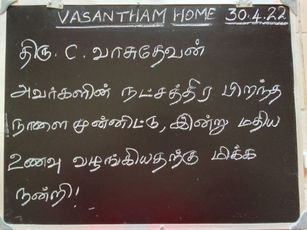 VASANTHAM HOME 30.4.22
திரு. C. வாசுதேவன்
அவர்களின் நட்சத்திர பிறந்த
நாளை முன்னிட்டு, இன்று மதிய
உணவு வழங்கியதற்கு மிக்க
நன்றி!